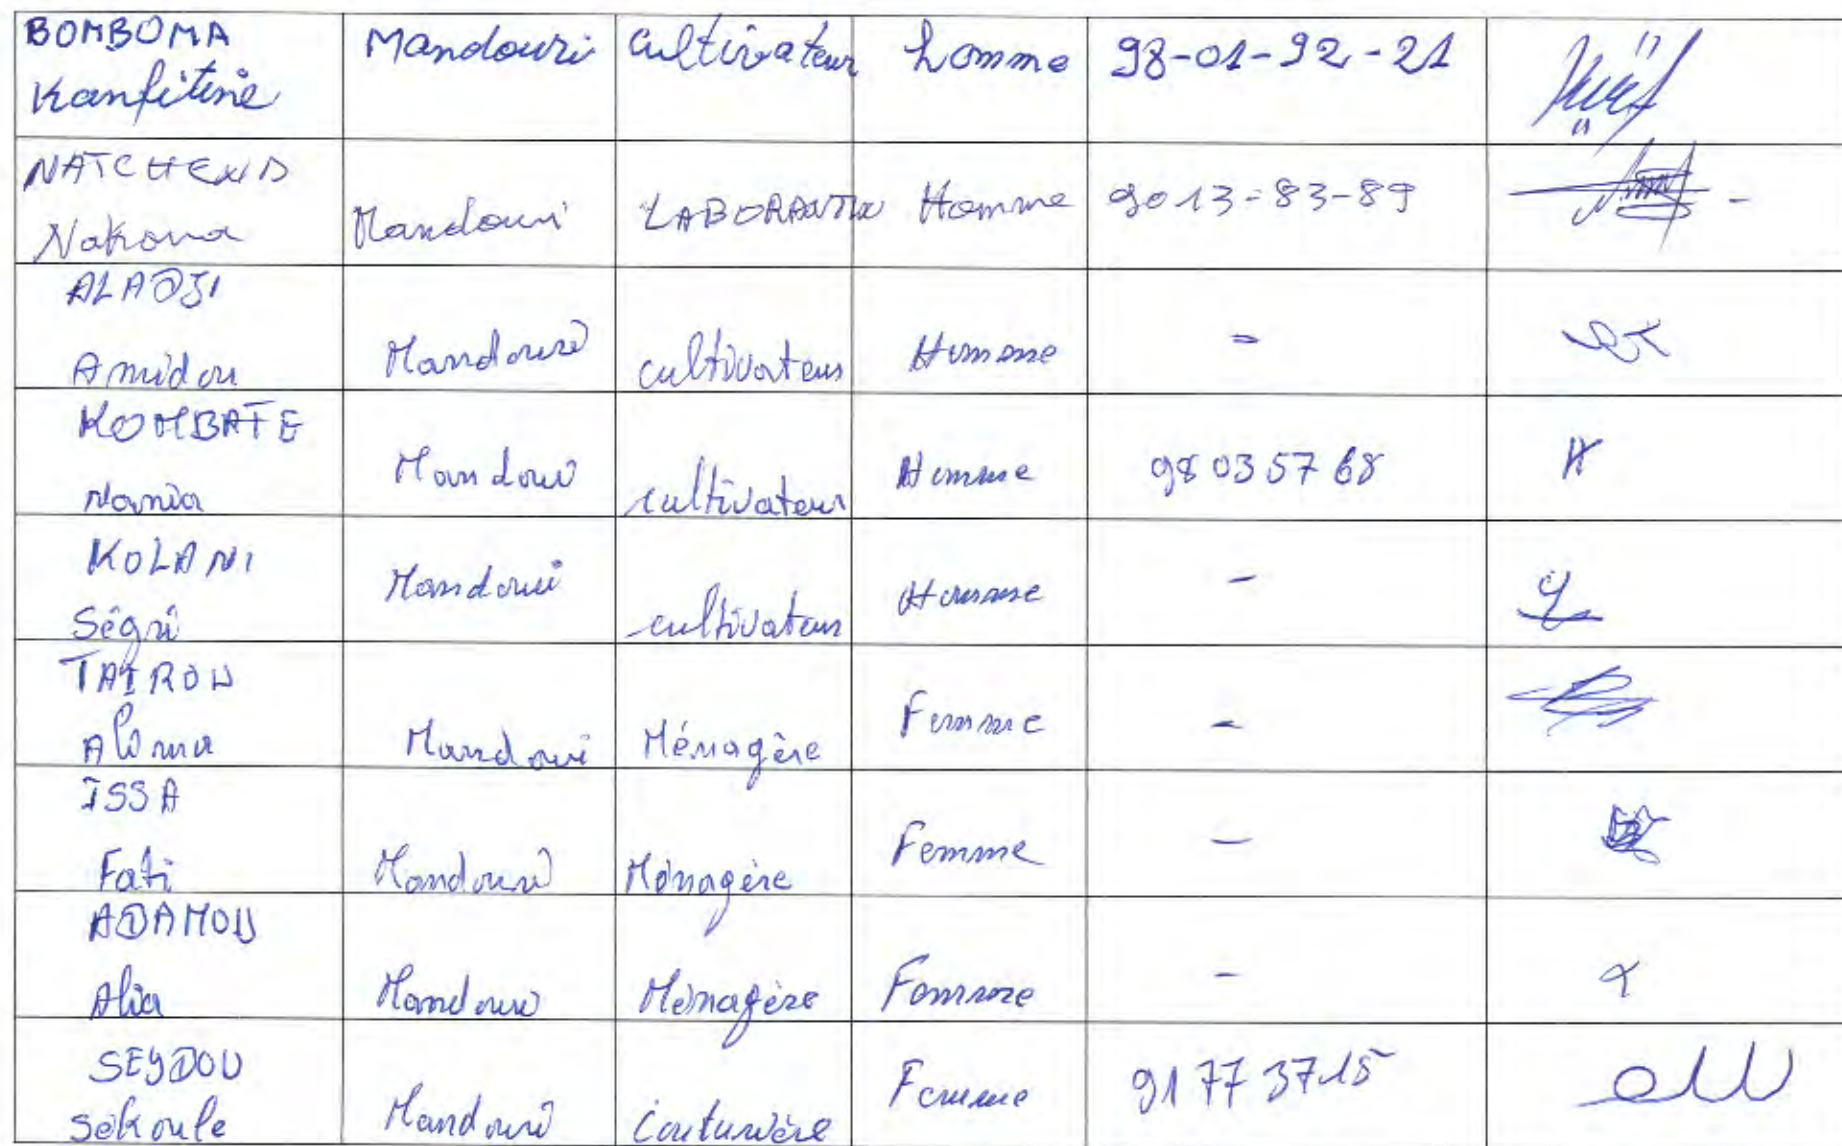 BOMBOMA Kanfitine Mandouri cultivateur homme 98-01-92-21
NATCHEND Nakona Mandouri LABORANTIN Homme 9013-83-89 -
ALADJI Amidou Mandouri cultivateur Homme -
KOMBATE Nania Mandouri cultivateur Homme 98 03 57 68
KOLANI Ségri Mandouri cultivateur Homme -
TAIROU Alima Mandouri Ménagère Femme -
ISSA Fati Mandouri Ménagère Femme -
ADAMOU Alia Mandouri Ménagère Femme -
SEYDOU Sékoule Mandouri Couturière Femme 91 77 37 15